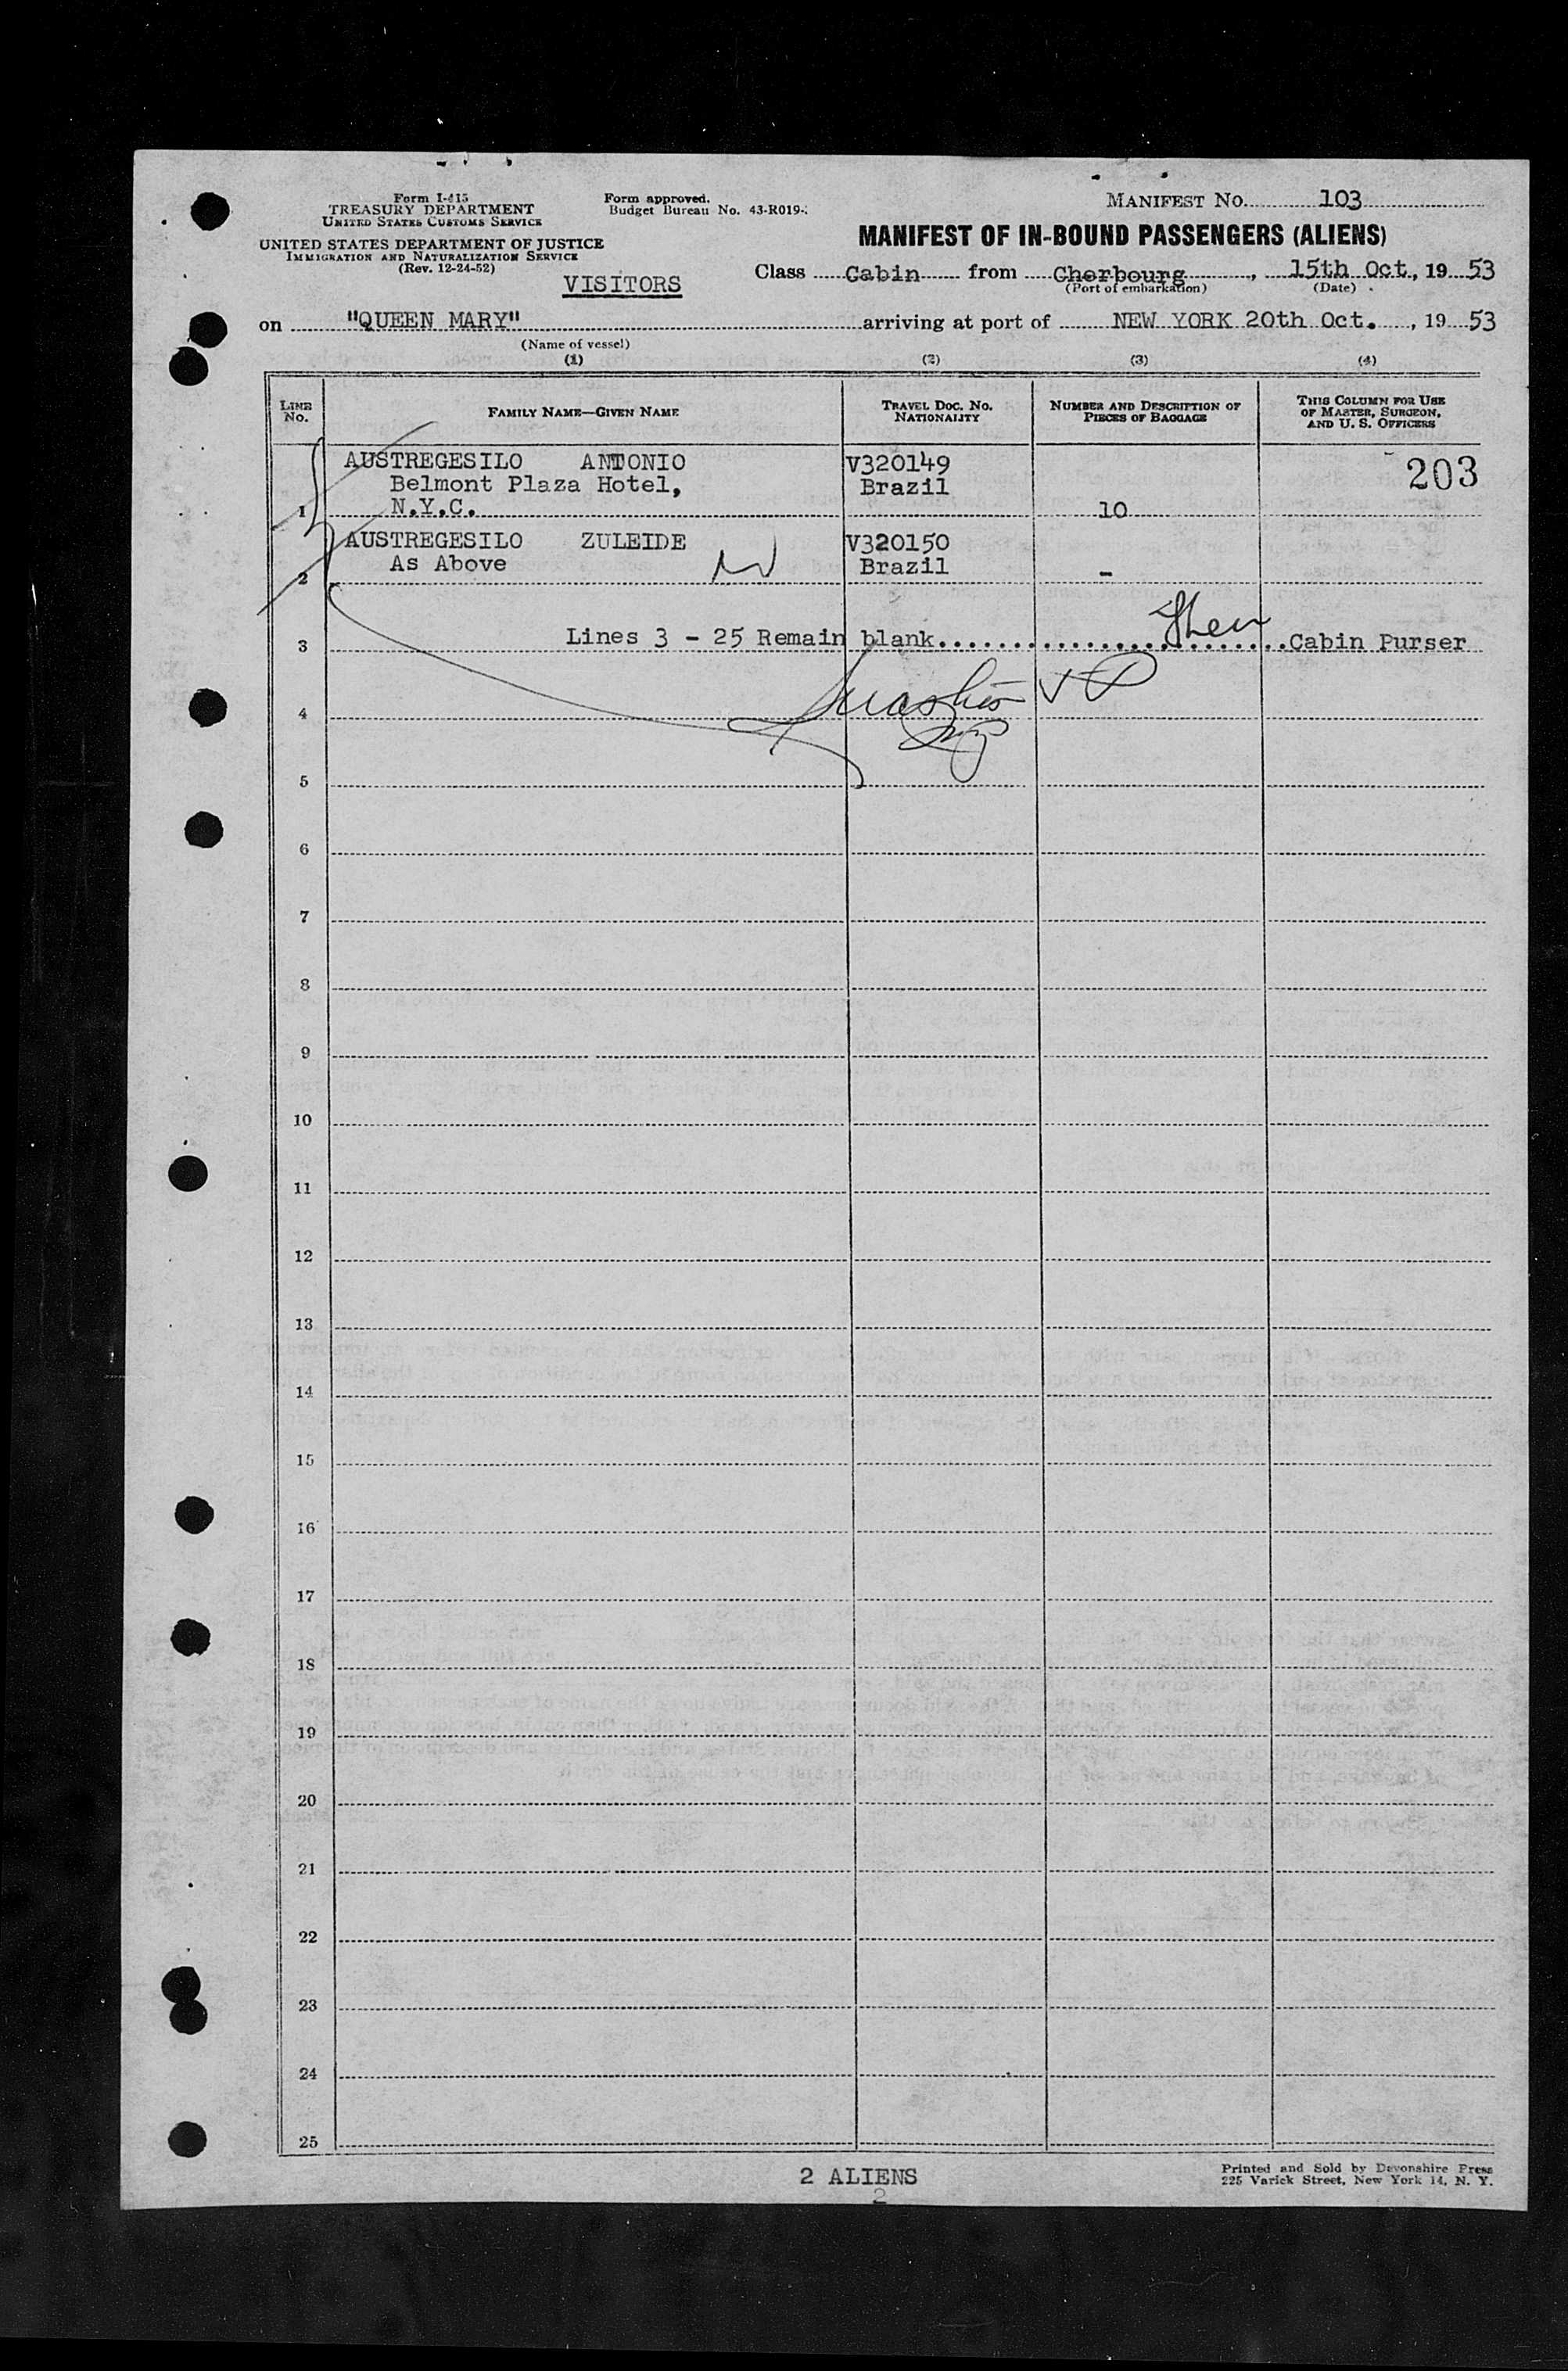 Form I-415
TREASURY DEPARTMENT
UNITED STATES CUSTOMS SERVICE
UNITED STATES DEPARTMENT OF JUSTICE
IMMIGRATION AND NATURALIZATION SERVICE
(Rev. 12-24-52)
Form approved.
Budget Bureau No. 43-R019-
MANIFEST No. 103
MANIFEST OF IN-BOUND PASSENGERS (ALIENS)
VISITORS
Class Cabin from Cherbourg, 15th Oct, 19 53
(Port of embarkation) (Date)
on "QUEEN MARY" arriving at port of NEW YORK 20th Oct., 19 53
(Name of vessel)
(1) (2) (3) (4)
LINE No. FAMILY NAME—GIVEN NAME TRAVEL DOC. No. NATIONALITY NUMBER AND DESCRIPTION OF PIECES OF BAGGAGE THIS COLUMN FOR USE OF MASTER, SURGEON, AND U. S. OFFICERS
AUSTREGESILO ANTONIO V320149 203
Belmont Plaza Hotel, Brazil
1 N.Y.C. 10
AUSTREGESILO ZULEIDE V320150
As Above Brazil
2 -
3 Lines 3 - 25 Remain blank........................Cabin Purser
4
5
6
7
8
9
10
11
12
13
14
15
16
17
18
19
20
21
22
23
24
25
2 ALIENS
2
Printed and Sold by Devonshire Press
225 Varick Street, New York 14, N. Y.